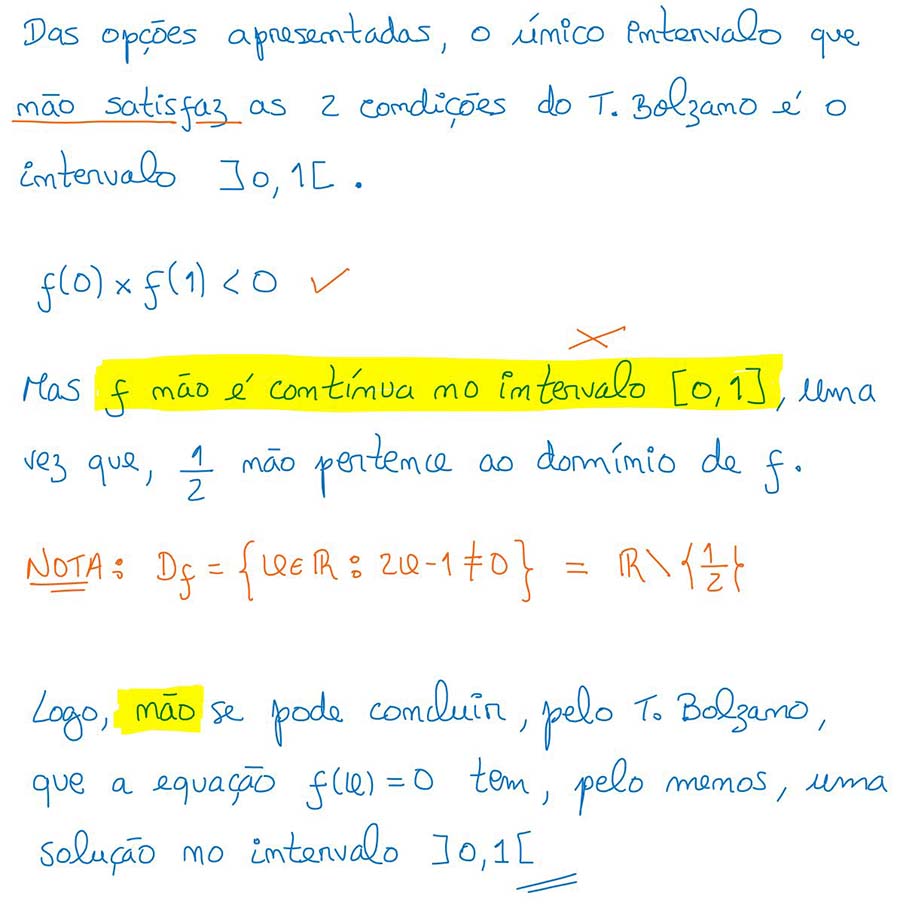 Das opções apresentadas, o único intervalo que
não satisfaz as 2 condições do T. Bolzano é o
intervalo ]0,1[ .
f(0) × f(1) < 0 ✓
×
Mas f não é contínua no intervalo [0,1], uma
vez que, 1/2 não pertence ao domínio de f.
NOTA: Df = {x∈ℝ : 2x-1≠0} = ℝ\{1/2}
Logo, não se pode concluir, pelo T. Bolzano,
que a equação f(x)=0 tem, pelo menos, uma
solução no intervalo ]0,1[